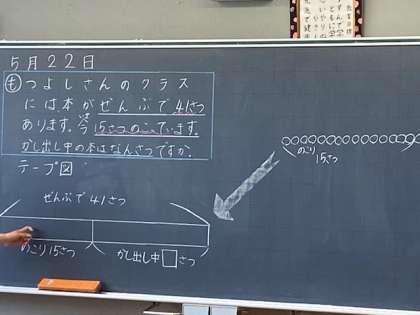 5月22日
も つよしさんのクラス
には、本がぜんぶで41さつ
あります。今 いま 15さつのこっています。
かし出し中の本はなんさつですか。
テープ図
ぜんぶで41さつ
のこり15さつ
かし出し中□さつ
のこり
15さつ